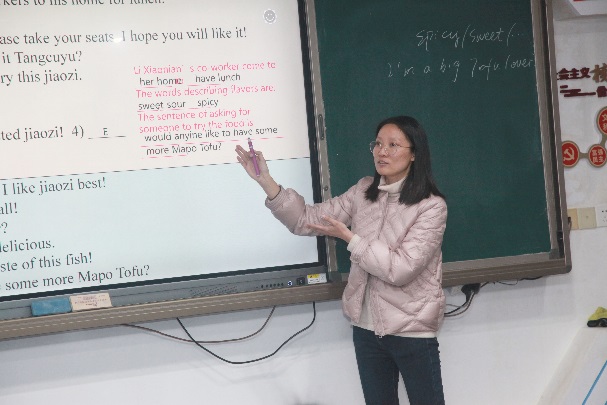 to his home for lunch!
ase take your seats. I hope you will like it!
it Tangcuyu?
ry this jiaozi.
ted jiaozi! 4) E
Li Xiaonian's co-worker come to
her home have lunch
The words describing flavors are.
sweet sour spicy
The sentence of asking for
someone to try the food is
would anyine like to have some
more Mapo Tofu?
I like jiaozi best!
all!
?
delicious.
ste of this fish!
some more Mapo Tofu?
spicy/sweet/...
I'm a big Tofu lover